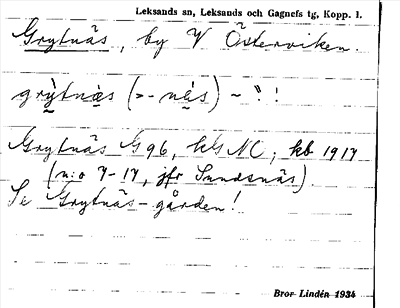 Leksands sn, Leksands och Gagnefs tg, Kopp. l.
Grytnäs, by V Österviken.
grỳtnæ̀s (>- nés) ~ ̀ !
Grytnäs G96, hGNC; kb 1917
(n:o 7-17, jfr Sundsnäs).
Se Grytnäs-gården!
Bror Lindén 1934